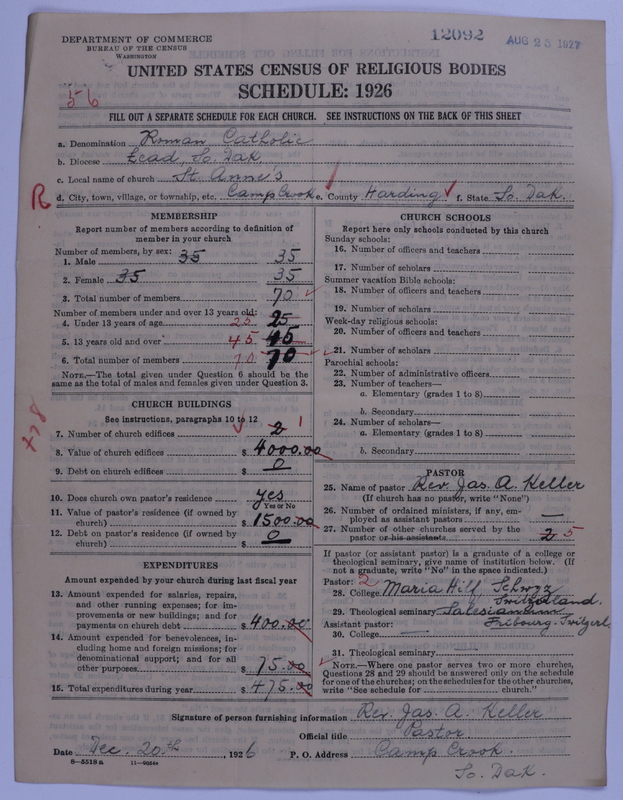 DEPARTMENT OF COMMERCE
BUREAU OF THE CENSUS
WASHINGTON
12092
AUG 25 1927
UNITED STATES CENSUS OF RELIGIOUS BODIES
SCHEDULE: 1926
56
FILL OUT A SEPARATE SCHEDULE FOR EACH CHURCH. SEE INSTRUCTIONS ON THE BACK OF THIS SHEET
a. Denomination Roman Catholic
b. Diocese Lead, So. Dak
c. Local name of church St Anne's
R d. City, town, village, or township, etc. Camp Crook e. County Harding f. State So. Dak.
MEMBERSHIP
Report number of members according to definition of
member in your church
Number of members, by sex:
1. Male 35 35
2. Female 35 35
3. Total number of members 70
Number of members under and over 13 years old:
4. Under 13 years of age 25 25
5. 13 years old and over 45 45
6. Total number of members 70 70
NOTE.—The total given under Question 6 should be the
same as the total of males and females given under Question 3.
CHURCH BUILDINGS
See instructions, paragraphs 10 to 12
7. Number of church edifices 2 1
8. Value of church edifices $ 4000.00
9. Debt on church edifices $ 0
10. Does church own pastor's residence yes
Yes or No
11. Value of pastor's residence (if owned by
church) $ 1500.00
12. Debt on pastor's residence (if owned by
church) $ 0
EXPENDITURES
Amount expended by your church during last fiscal year
13. Amount expended for salaries, repairs,
and other running expenses; for im-
provements or new buildings; and for
payments on church debt $ 400.00
14. Amount expended for benevolences, in-
cluding home and foreign missions; for
denominational support; and for all
other purposes $ 75.00
15. Total expenditures during year $ 475.00
CHURCH SCHOOLS
Report here only schools conducted by this church
Sunday schools:
16. Number of officers and teachers
17. Number of scholars
Summer vacation Bible schools:
18. Number of officers and teachers
19. Number of scholars
Week-day religious schools:
20. Number of officers and teachers
21. Number of scholars
Parochial schools:
22. Number of administrative officers
23. Number of teachers—
a. Elementary (grades 1 to 8)
b. Secondary
24. Number of scholars—
a. Elementary (grades 1 to 8)
b. Secondary
PASTOR
25. Name of pastor Rev. Jas. A. Keller
(If church has no pastor, write "None")
26. Number of ordained ministers, if any, em-
ployed as assistant pastors —
27. Number of other churches served by the
pastor or his assistants 2 5
If pastor (or assistant pastor) is a graduate of a college or
theological seminary, give name of institution below. (If
not a graduate, write "No" in the space indicated.)
Pastor: 2
28. College Maria Hilf Schwyz
Switzerland.
29. Theological seminary Salesianum
Fribourg-Switzerl.
Assistant pastor:
30. College —
31. Theological seminary
NOTE.—Where one pastor serves two or more churches,
Questions 28 and 29 should be answered only on the schedule
for one of the churches; on the schedules for the other churches,
write "See schedule for church."
Signature of person furnishing information Rev. Jas. A. Keller
Official title Pastor
Date Dec. 20.th, 1926 P. O. Address Camp Crook.
So. Dak.
8—5518 a